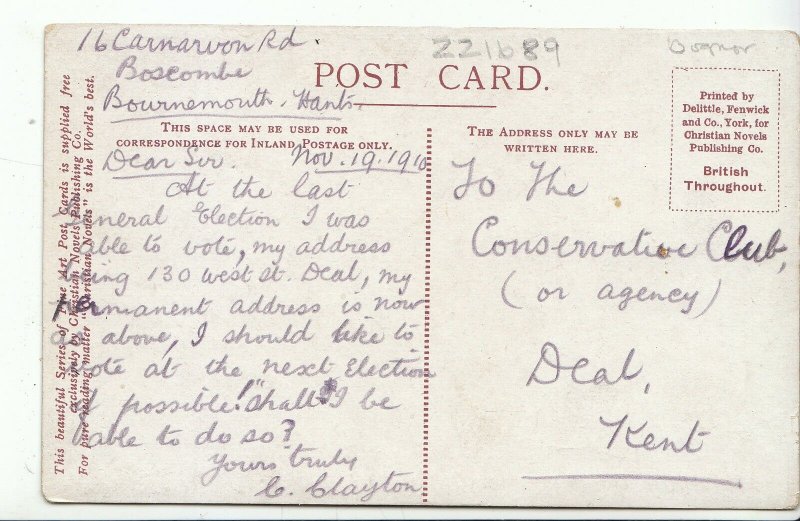 16 Carnarvon Rd.
Boscombe
Bournemouth. Hants.
221689
Bognor
POST CARD.
THIS SPACE MAY BE USED FOR
CORRESPONDENCE FOR INLAND POSTAGE ONLY.
THE ADDRESS ONLY MAY BE
WRITTEN HERE.
Printed by
Delittle, Fenwick
and Co., York, for
Christian Novels
Publishing Co.
British
Throughout.
Dear Sir. Nov. 19. 1910
At the last
General Election I was
able to vote, my address
being 130 West St. Deal, my
permanent address is now
as above, I should like to
vote at the next Election
if possible! "Shall I be
able to do so?
Yours truly
C. Clayton
To The
Conservative Club,
(or agency)
Deal,
Kent
This beautiful Series of Fine Art Post Cards is supplied free
exclusively by Christian Novels Publishing Co.
For pure reading matter "Christian Novels" is the World's best.